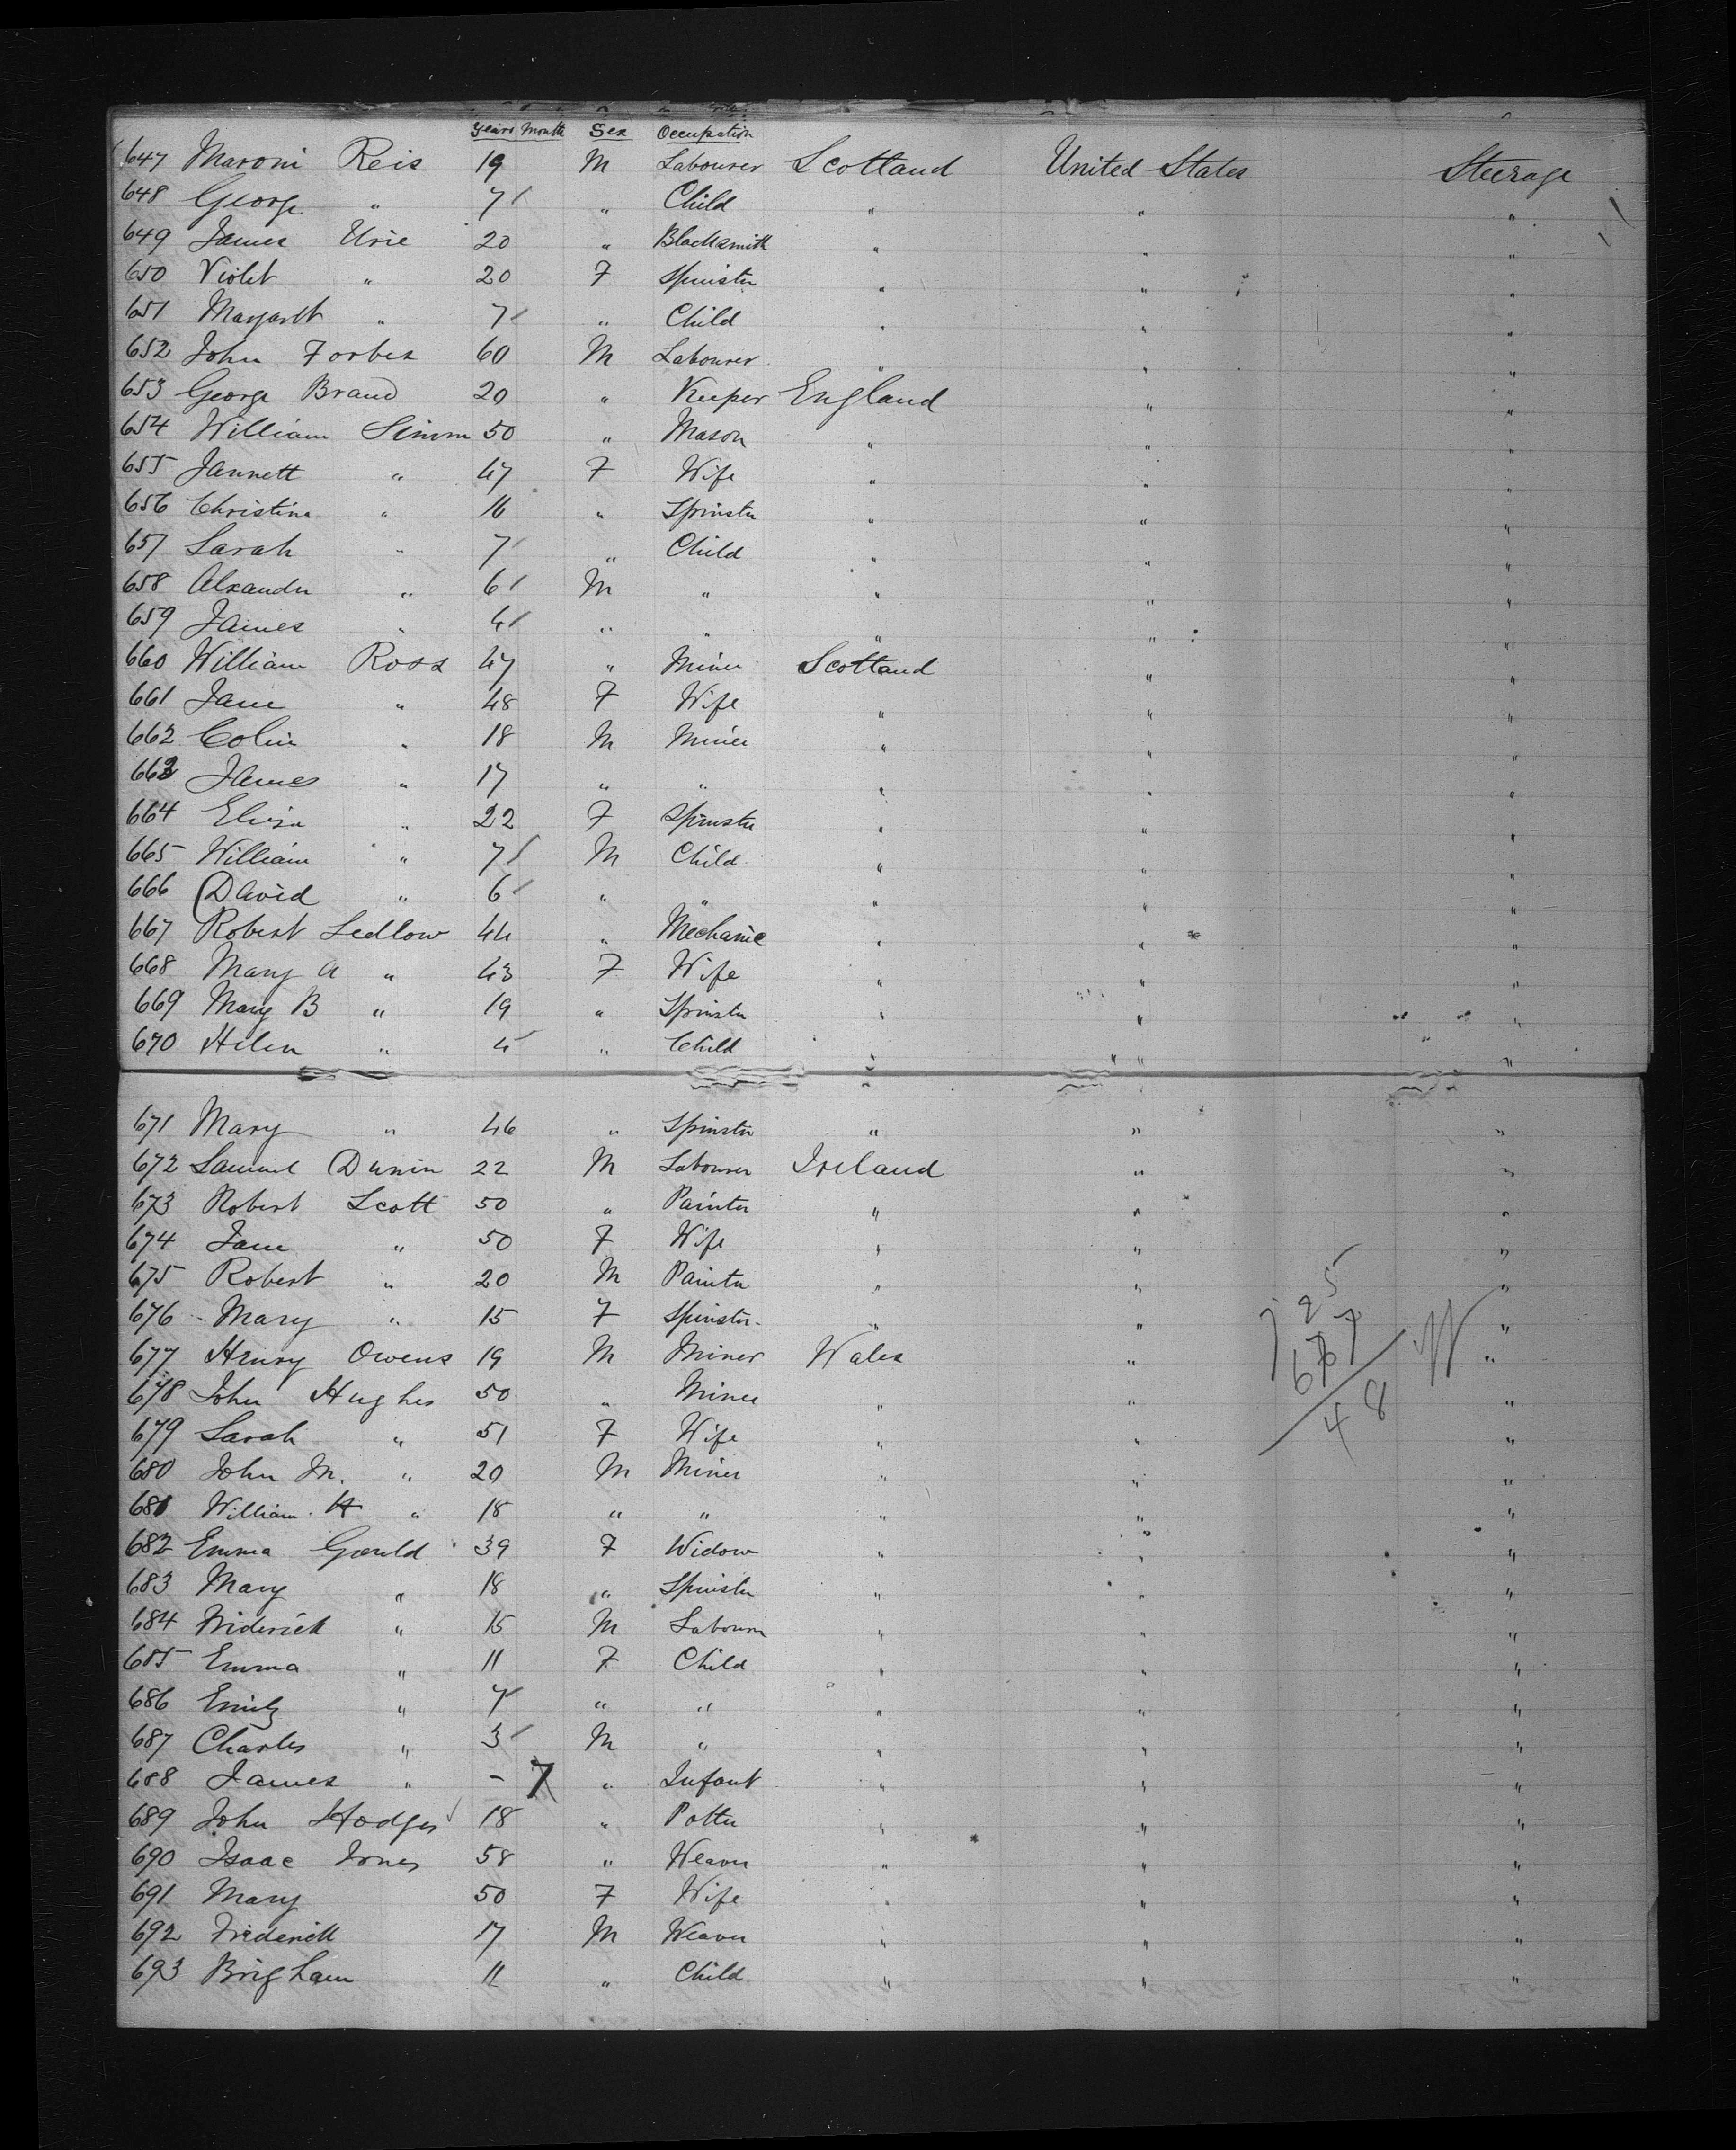 Years Month Sex Occupation
647 Maroni Reis 19 M Labourer Scotland United States Steerage
648 George " 7 " Child " " "
649 James Urie 20 " Blacksmith " " "
650 Violet " 20 F Spinster " " "
651 Margaret " 7 " Child " " "
652 John Forbes 60 M Labourer " " "
653 George Brand 20 " Keeper England " "
654 William Simm 50 " Mason " " "
655 Jannett " 47 F Wife " " "
656 Christina " 16 " Spinster " " "
657 Sarah " 7 " Child " " "
658 Alxander " 6 M " " " "
659 James " 4 " " " " "
660 William Ross 47 " Miner Scotland " "
661 Jane " 48 F Wife " " "
662 Colin " 18 M Miner " " "
663 James " 17 " " " " "
664 Eliza " 22 F Spinster " " "
665 William " 7 M Child " " "
666 David " 6 " " " " "
667 Robert Sedlow 44 " Mechanic " " "
668 Mary A " 43 F Wife " " "
669 Mary B " 19 " Spinster " " "
670 Helen " 4 " Child " " "
671 Mary " 46 " Spinster " " "
672 Samuel Dunin 22 M Labourer Ireland " "
673 Robert Scott 50 " Painter " " "
674 Jane " 50 F Wife " " "
675 Robert " 20 M Painter " " "
676 Mary " 15 F Spinster " " "
677 Henry Owens 19 M Miner Wales " "
678 John Hughes 50 " Miner " " "
679 Sarah " 51 F Wife " " "
680 John M. " 20 M Miner " " "
681 William H " 18 " " " " "
682 Emma Gould 39 F Widow " " "
683 Mary " 18 " Spinster " " "
684 Friderick " 15 M Labourer " " "
685 Emma " 11 F Child " " "
686 Emily " 7 " " " " "
687 Charles " 3 M " " " "
688 James " - 7 " Infant " " "
689 John Hodges 18 " Potter " " "
690 Isaac Jones 58 " Weaver " " "
691 Mary 50 F Wife " " "
692 Friderick 17 M Weaver " " "
693 Brigham 11 " Child " " "